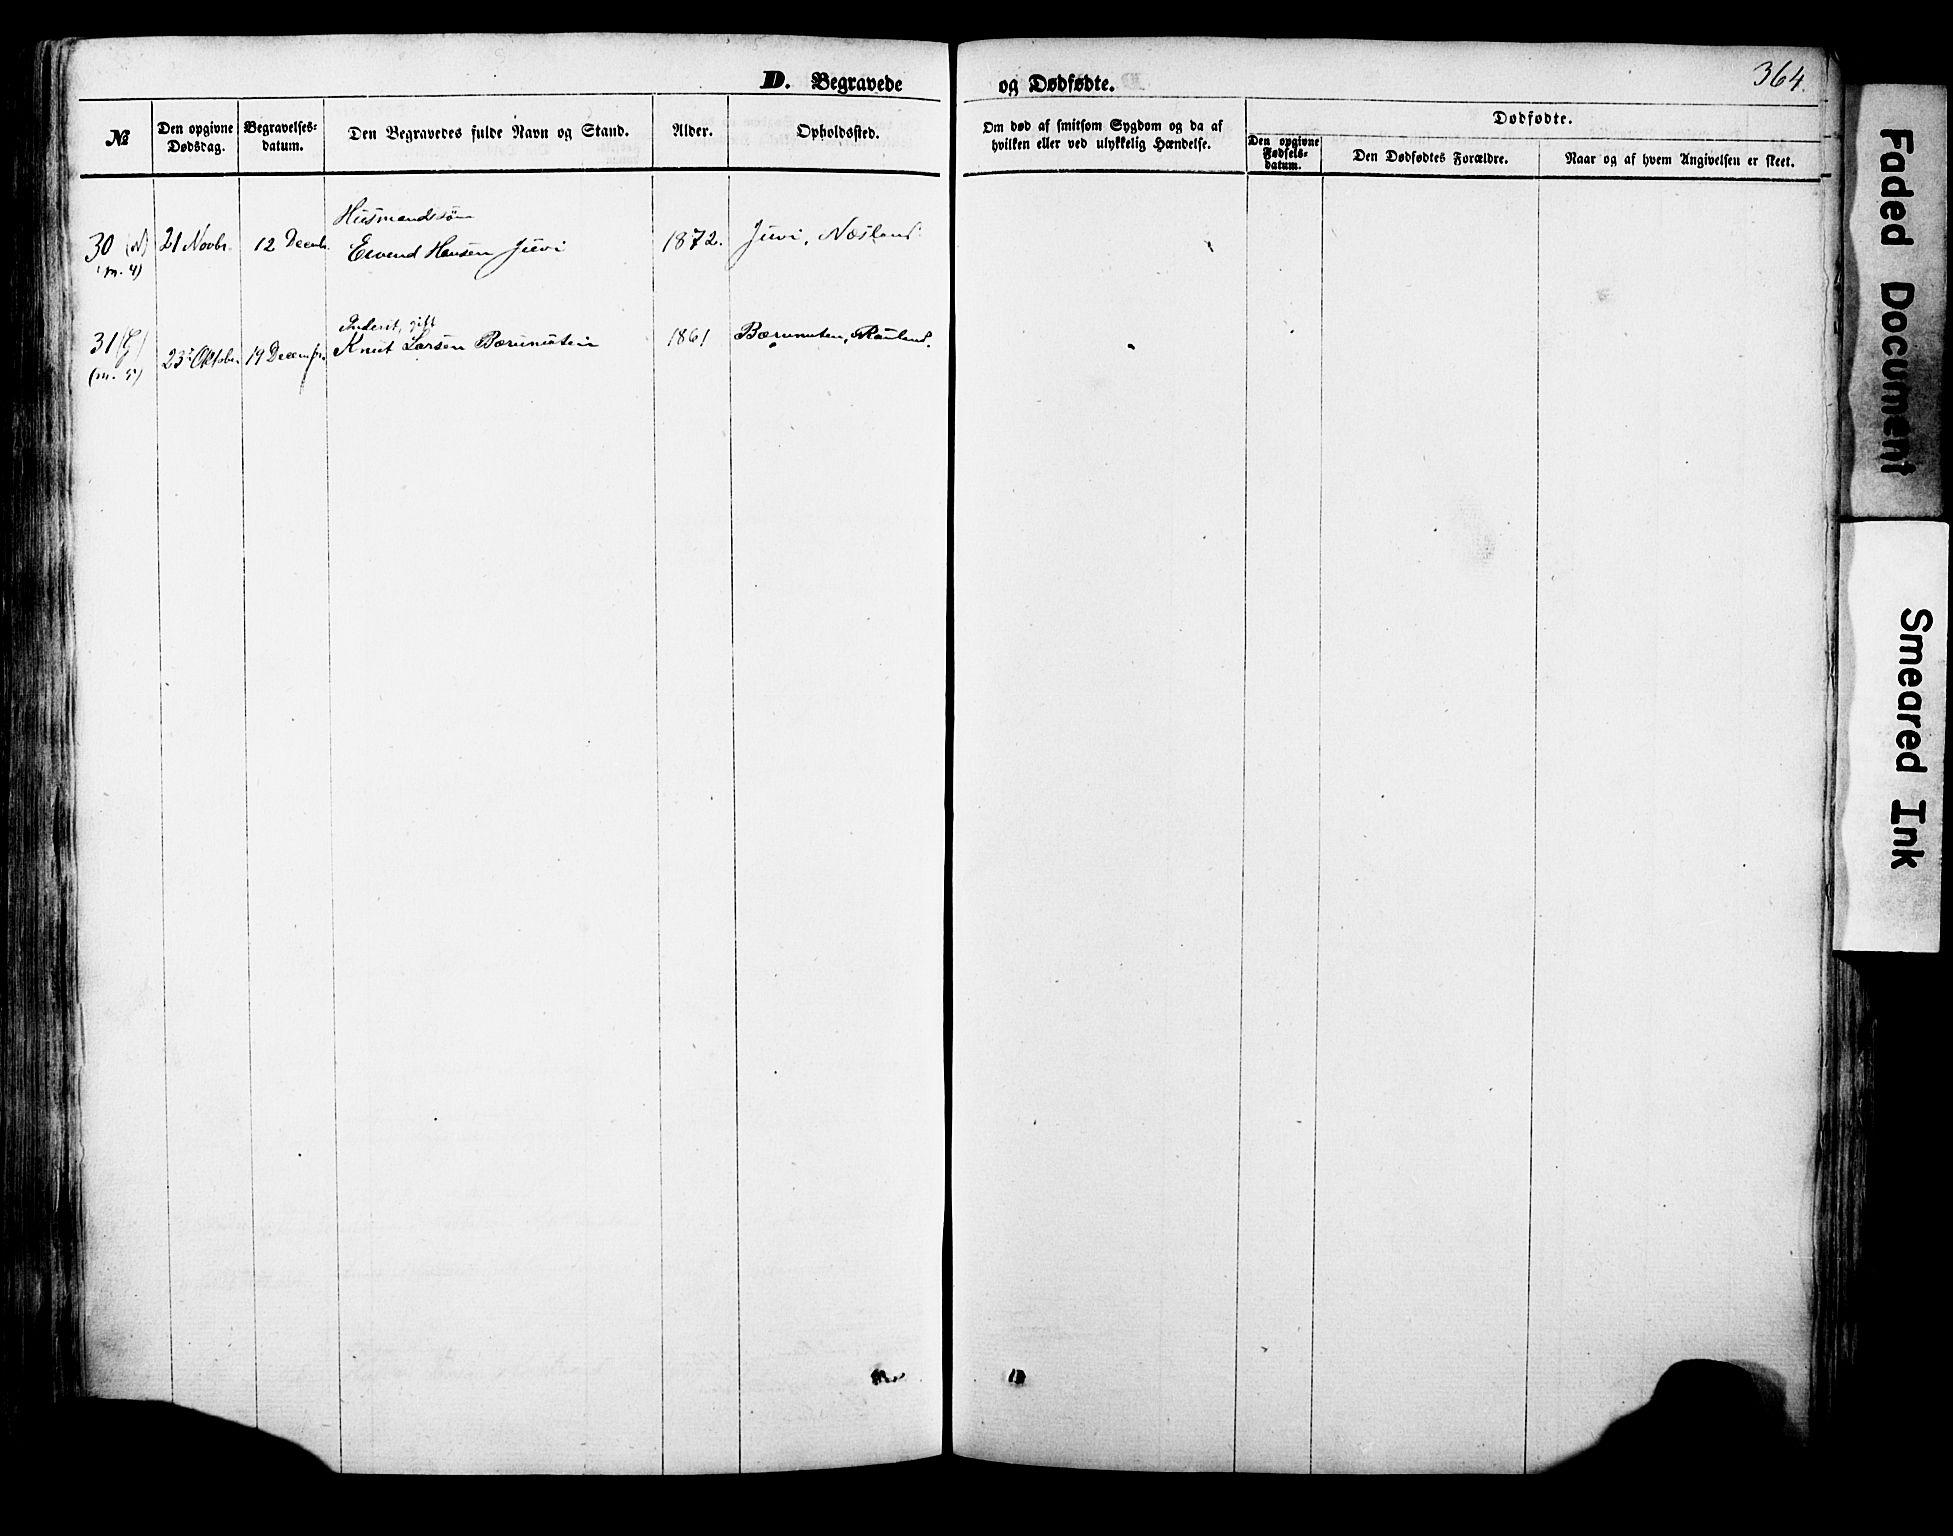 D. Begravede og Dødfødte.
364.
№
Den opgivne Dødsdag.
Begravelses-datum.
Den Begravedes fulde Navn og Stand.
Alder.
Opholdssted.
Om død af smitsom Sygdom og da af hvilken eller ved ulykkelig Hændelse.
Dødfødte.
Den opgivne Fødsels-datum.
Den Dødfødtes Forældre.
Naar og af hvem Angivelsen er skeet.
Husmandssøn
30 (N) 21 Novbr. 12 Decemb. Eivend Hansen Juvi 1872. Juvi, Næsland.
(m. 4)
Inderst, gift
31 (G) 23 Oktober 19 Decembr. Knut Larsen Bærunuten 1861 Bærunuten, Rauland.
(m. 5)
Faded Document
Smeared Ink